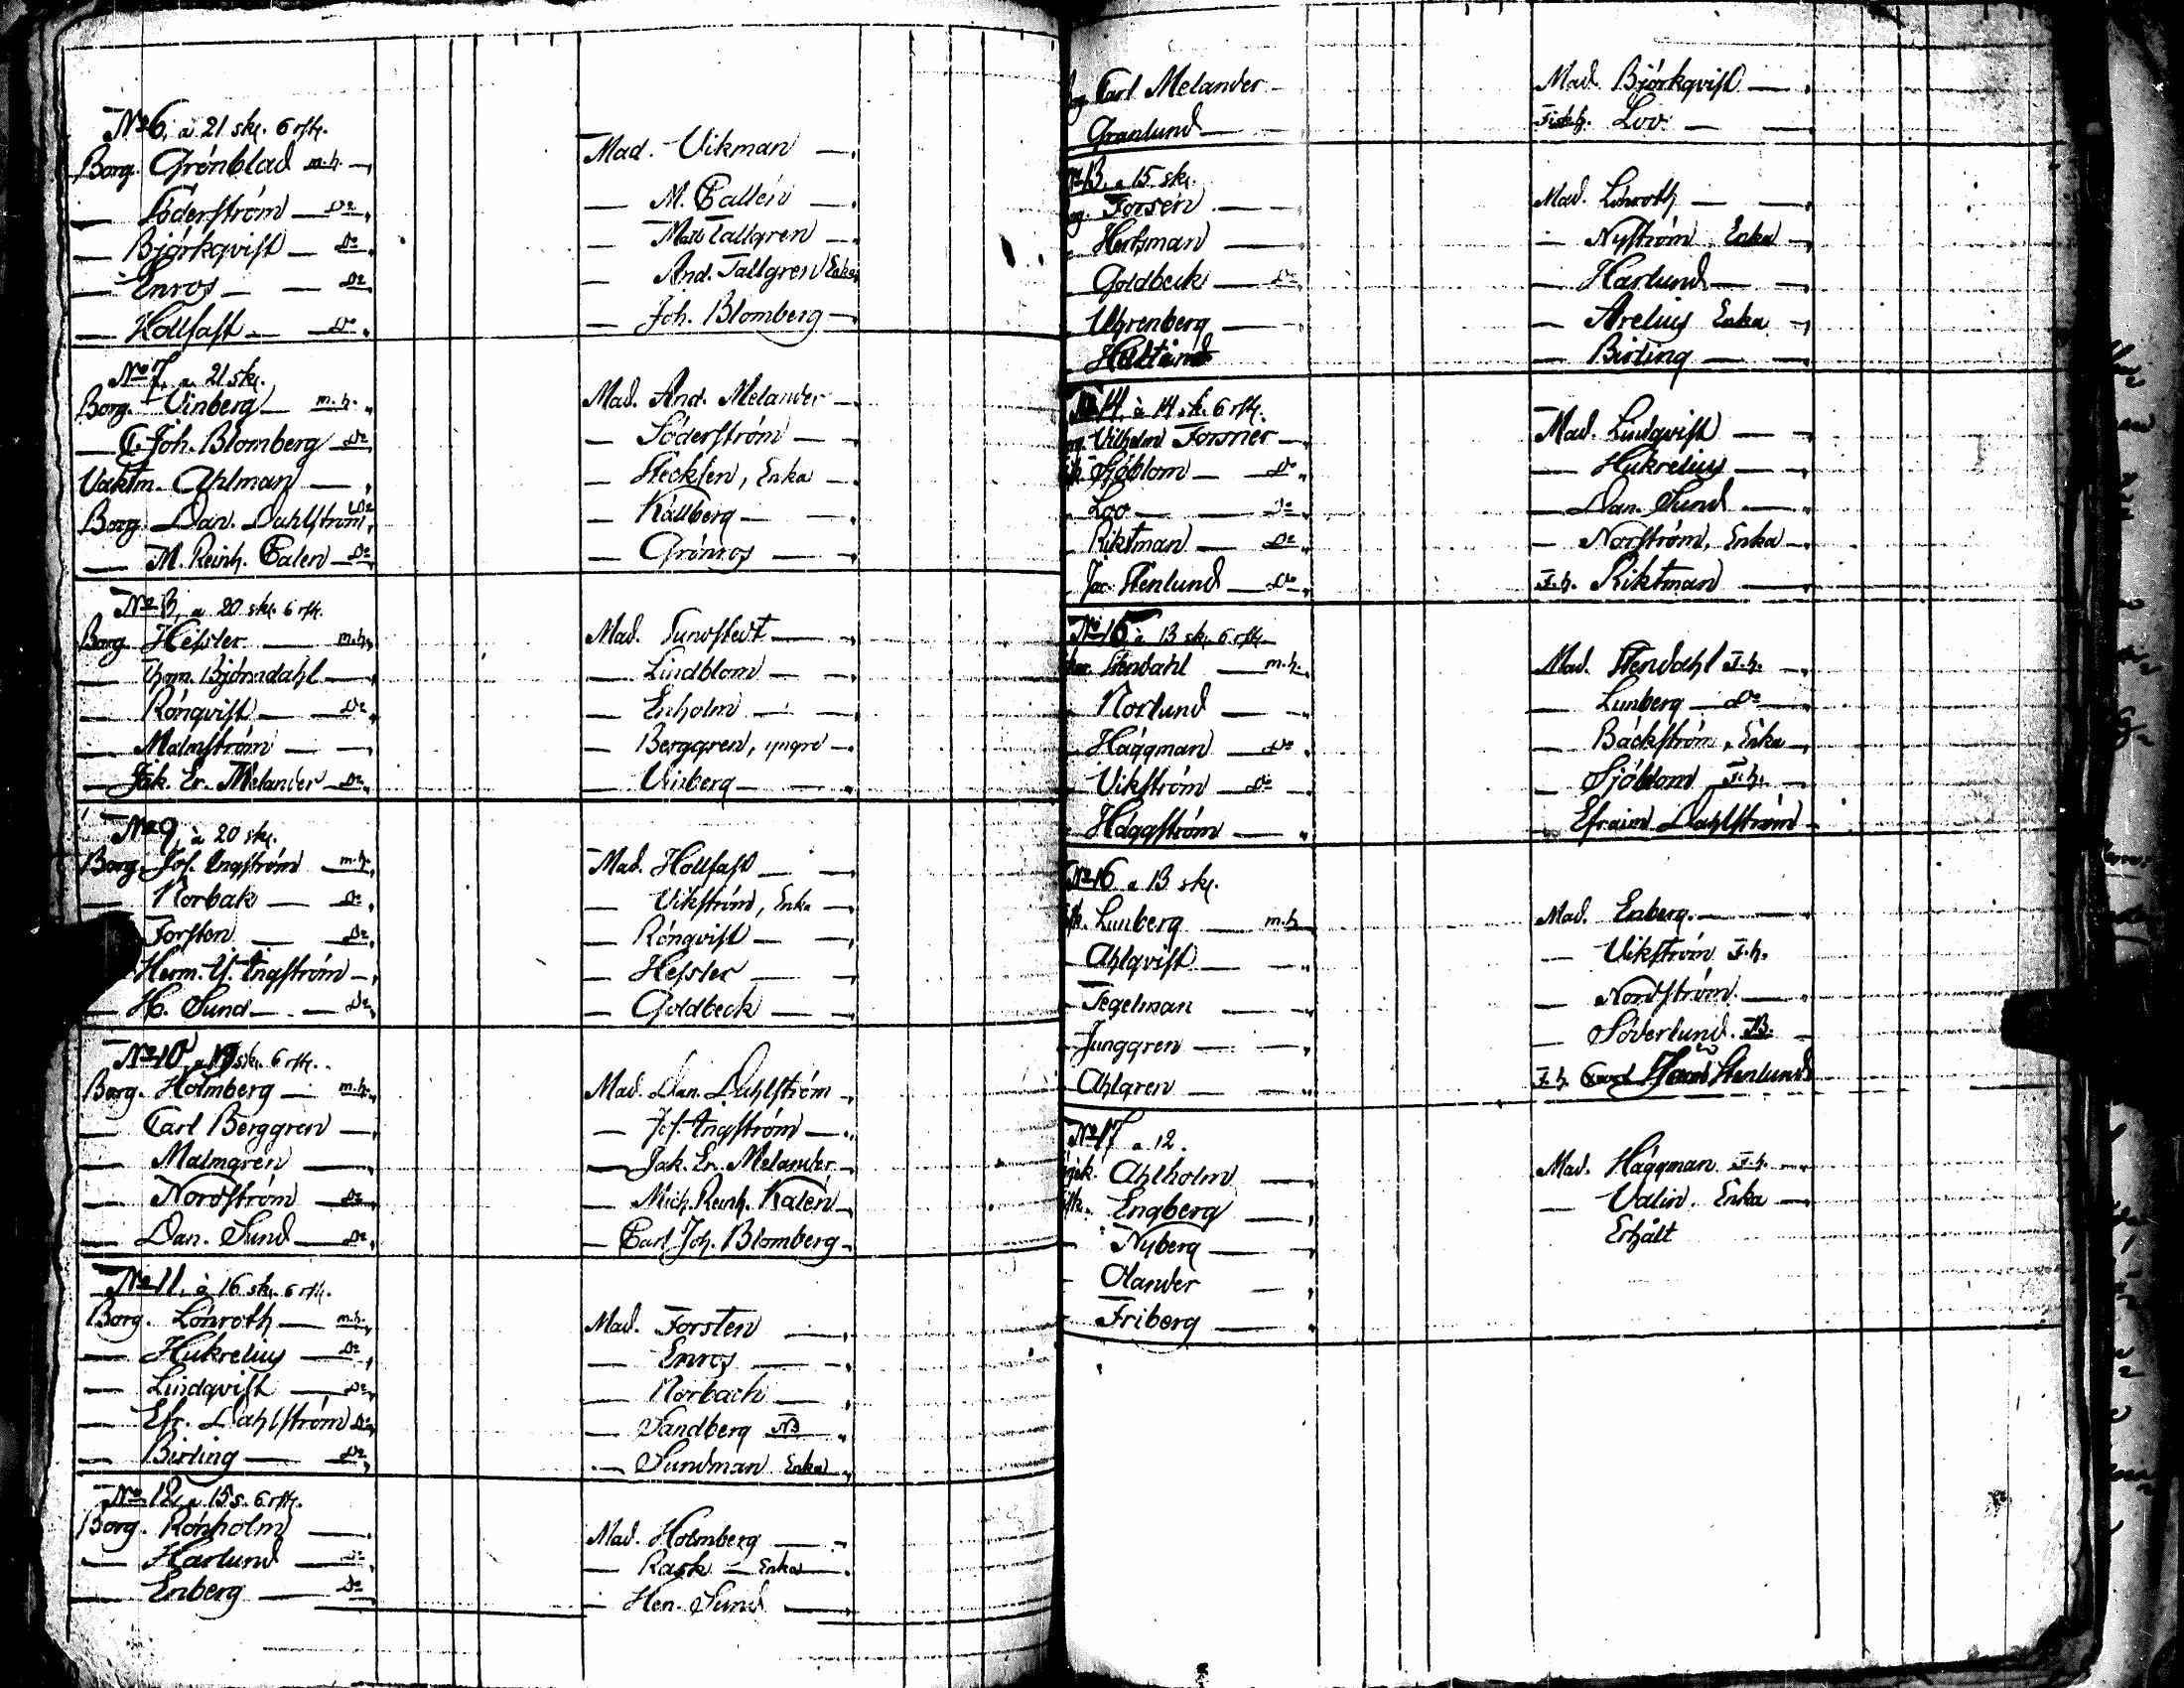 No 6, a 21 sk. 6 rst.
Borg. Grönblad m.h. —
— Söderström — Do
— Björkqvist — Do
— Enros — — Do
— Hollfast — Do
No 7, a 21 sk.
Borg. Vinberg — m.h.
— C. Joh. Blomberg Do
Vaktm. Ahlman —
Borg. Dan. Dahlström, Do
— M. Reinh. Calen — Do
No 8, a 20 sk. 6 rst.
Borg. Hessler — m.h.
— Thom. Björndahl —
— Rönqvist — Do
— Malmström — —
— Jak. Er. Melander — Do
No 9, à 20 sk.
Borg. Jos. Engström m.h.
— Norbak — Do
Forsten — Do
Herm. Engström —
— H. Sund — — Do
No 10, a 19 sk. 6 rst.
Borg. Holmberg — m.h.
— Carl Berggren —
— Malmgren —
— Nordström — Do
— Dan. Sund — Do
No 11, à 16 sk. 6 rst.
Borg. Lönroth — m.h.
— Hukrelius — Do
— Lindqvist — Do
— Efr. Dahlström Do
— Birling — Do
No 12, a 15 s. 6 rst.
Borg. Rönholm —
— Harlund — Do
— Enberg — Do
Mad. Vikman —
— M. Callén —
— Matts Tallgren —
— And. Tallgren Enka
— Joh. Blomberg —
Mad. And. Melander —
— Söderström —
— Stecksen, Enka —
— Kållberg — —
— Grönros — —
Mad. Sundstedt — —
— Lindblom — —
— Enholm — —
— Berggren, yngre —
— Vinberg — —
Mad. Hollfast — —
— Vikström, Enka —
— Rönqvist — —
— Hessler — —
— Goldbeck — —
Mad. Dan. Dahlström —
— Jos. Engström —
— Jak. Er. Melander —
— Mich. Reinh. Kalén —
— Carl Joh. Blomberg —
Mad. Forsten —
— Enros — —
— Norbach —
— Sandberg NB
— Sundman Enka
Mad. Holmberg — —
— Rask — Enka —
— Hen. Sund —
Carl Melander —
Granlund —
No 13, a 15 sk.
Forsén —
Hertsman —
Goldbeck — Do
Uhrenberg —
No 14, à 14 sk. 6 rst.
Vilhelm Forsnér —
Sjöblom — Do
Loo — Do
Riktman — Do
Jac. Stenlund — Do
No 15 à 13 sk. 6 rst.
Stendahl — m.h.
Norlund — —
Häggman — Do
Vikström — Do
Häggström —
No 16 a 13 sk.
Lunberg — m.h.
Ahlqvist — —
Tegelman —
Junggren —
Ahlgren —
No 17 a 12.
Ahlholm —
Engberg —
Nyberg —
Olander —
Friberg —
Mad. Björkqvist —
Loo — —
Mad. Lönroth — —
— Nyström, Enka —
— Harlund —
— Arelius Enka —
— Birling — —
Mad. Lindqvist — —
— Hukrelius —
— Dan. Sund —
— Norström, Enka —
F.h. Riktman —
Mad. Stendahl F.h. —
— Lunberg — Do —
— Bäckström, Enka —
— Sjöblom F.h. —
— Efraim Dahlström
Mad. Enberg — —
— Vikström F.h.
— Nordström —
— Söderlund. —
F.h. Stenlund
Mad. Häggman F.h. —
— Valin. Enka —
Erhålt